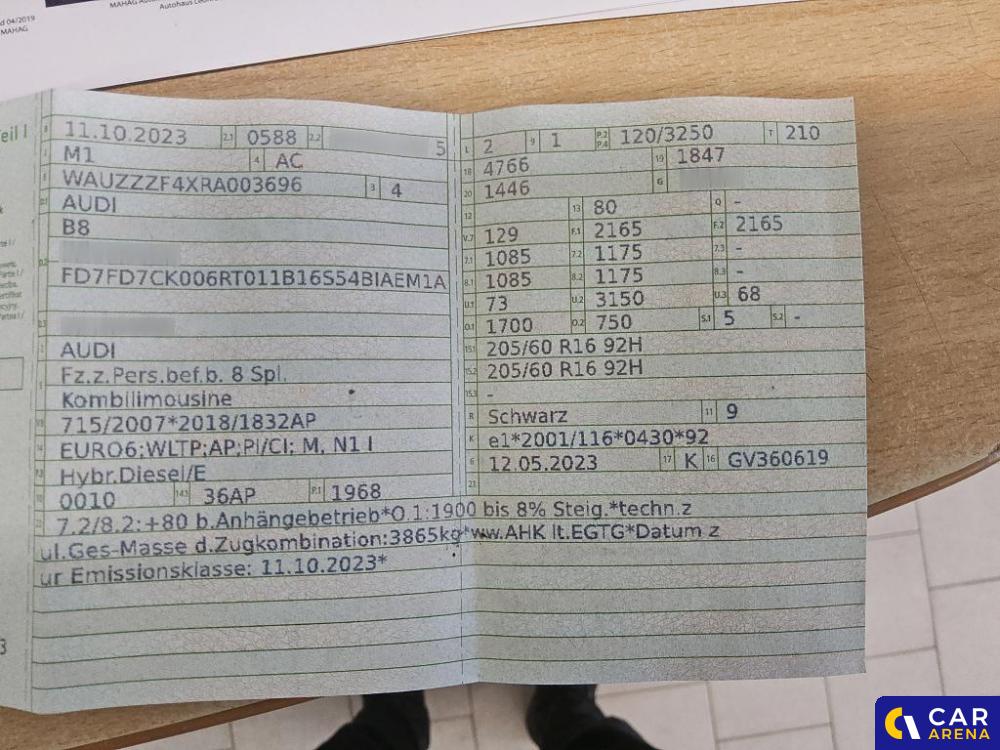 d 04/2019
MAHAG
MAHAG
Autohaus
eil I
B 11.10.2023 2.1 0588 2.2 5
J M1 4 AC
E WAUZZZF4XRA003696 3 4
D.1 AUDI
B8
D.2
FD7FD7CK006RT011B16S54BIAEM1A
D.3
2 AUDI
5 Fz.z.Pers.bef.b. 8 Spl.
Kombilimousine
V.9 715/2007*2018/1832AP
14 EURO6;WLTP;AP;PI/CI; M, N1 I
P.3 Hybr.Diesel/E
10 0010 14.1 36AP P.1 1968
L 2 9 1 P.2 P.4 120/3250 T 210
18 4766 19 1847
20 1446 G
12 13 80 Q -
V.7 129 F.1 2165 F.2 2165
7.1 1085 7.2 1175 7.3 -
8.1 1085 8.2 1175 8.3 -
U.1 73 U.2 3150 U.3 68
O.1 1700 O.2 750 S.1 5 S.2 -
15.1 205/60 R16 92H
15.2 205/60 R16 92H
15.3 -
R Schwarz 11 9
K e1*2001/116*0430*92
6 12.05.2023 17 K 16 GV360619
21
22 7.2/8.2:+80 b.Anhängebetrieb*O.1:1900 bis 8% Steig.*techn.z
ul.Ges-Masse d.Zugkombination:3865kg*ww.AHK lt.EGTG*Datum z
ur Emissionsklasse: 11.10.2023*
3
CAR
ARENA